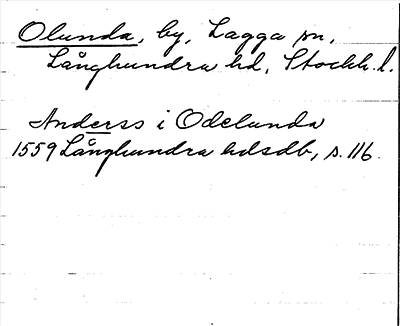 Olunda, by, Lagga sn,
Långhundra hd, Stockh. l.
Anderss i Odelunda
1559 Långhundra hdsdb, s. 116.